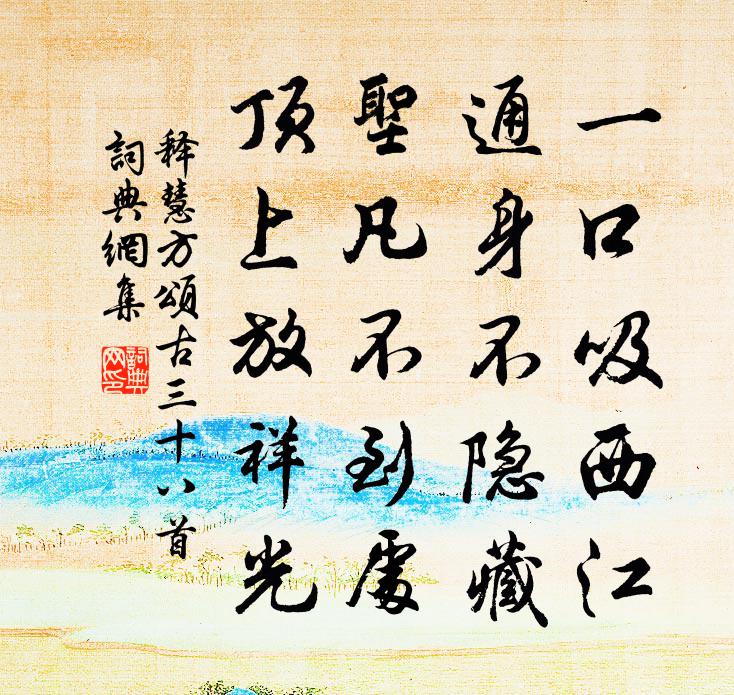 一口吸西江
通身不隐藏
聖凡不到處
頂上放祥光
释慧方頌古三十八首
詞典網集
詞典網印